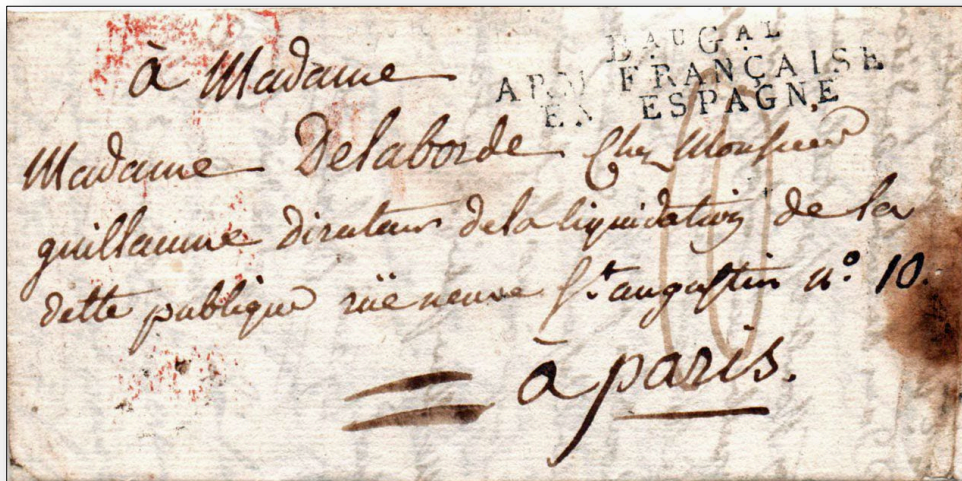 BAUGAL
ARM FRANÇAISE
EN ESPAGNE
à Madame
Madame Delaborde chez Monsieur
guillaume directeur de la liquidation de la
dette publique rüe neuve St. augustin n.o 10.
à paris.